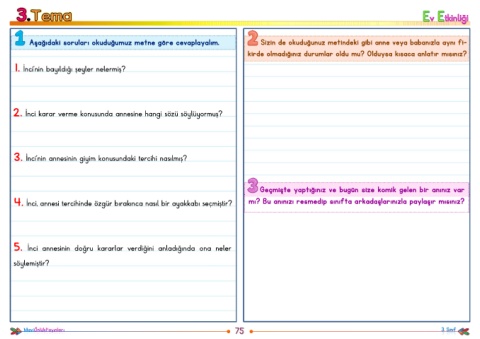 3.Tema
Ev Etkinliği
1 Aşağıdaki soruları okuduğumuz metne göre cevaplayalım.
1. İnci'nin bayıldığı şeyler nelermiş?
2. İnci karar verme konusunda annesine hangi sözü söylüyormuş?
3. İnci'nin annesinin giyim konusundaki tercihi nasılmış?
4. İnci, annesi tercihinde özgür bırakınca nasıl bir ayakkabı seçmiştir?
5. İnci annesinin doğru kararlar verdiğini anladığında ona neler
söylemiştir?
2 Sizin de okuduğunuz metindeki gibi anne veya babanızla aynı fi-
kirde olmadığınız durumlar oldu mu? Olduysa kısaca anlatır mısınız?
3 Geçmişte yaptığınız ve bugün size komik gelen bir anınız var
mı? Bu anınızı resmedip sınıfta arkadaşlarınızla paylaşır mısınız?
75
3. Sınıf